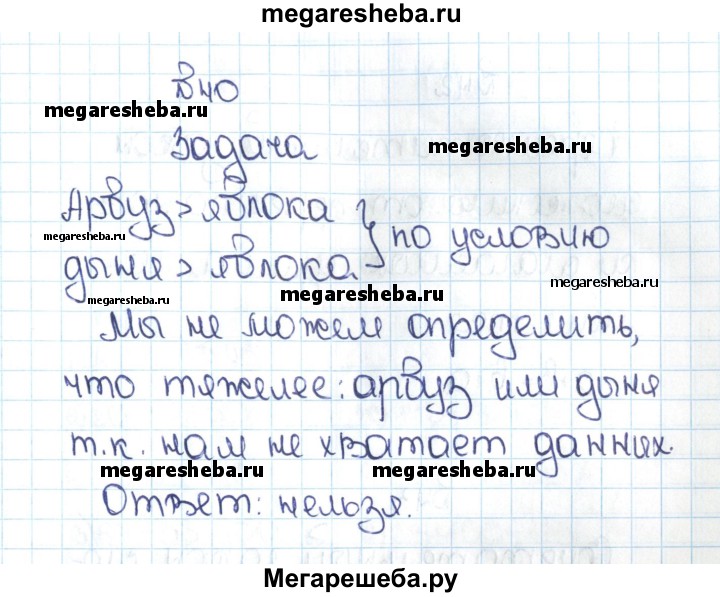 megaresheba.ru
В40
megaresheba.ru
Задача
megaresheba.ru
Арбуз > яблока
megaresheba.ru
дыня > яблока } по условию
megaresheba.ru
megaresheba.ru
megaresheba.ru
Мы не можем определить,
что тяжелее: арбуз или дыня
т.к. нам не хватает данных.
megaresheba.ru
megaresheba.ru
Ответ: нельзя.
Мегарешеба.ру